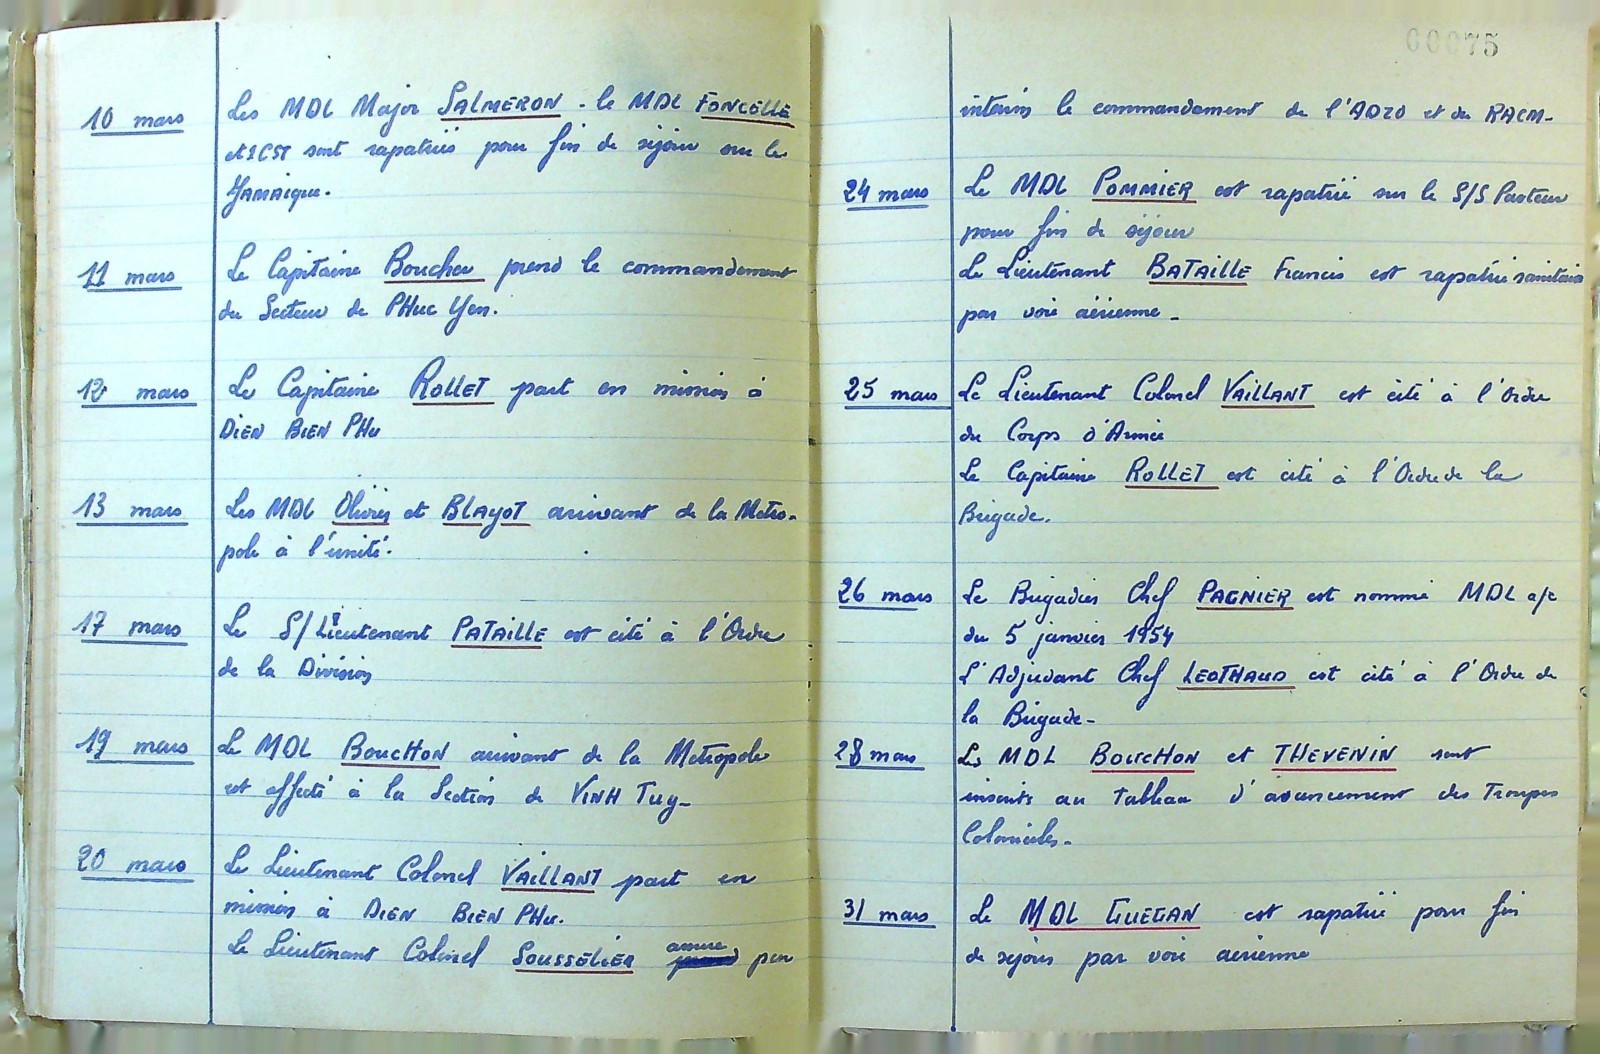 10 mars
Les MDL Major SALMERON - le MDL FONCELLE
sont rapatriés pour fin de séjour sur le
JAMAïque.
11 mars
Le Capitaine Boucher prend le commandement
du Secteur de PHuc Yen.
12 mars
Le Capitaine ROLLET part en mission à
DIEN BIEN PHu
13 mars
Les MDL Olivier et BLAYOT arrivant de la Metro-
pole à l'unité.
17 mars
Le S/Lieutenant PATAILLE est cité à l'Ordre
de la Division
19 mars
Le MDL BOUCHON arrivant de la Metropole
est affecté à la Section de VINH Tuy-
20 mars
Le Lieutenant Colonel VAILLANT part en
mission à DIEN BIEN PHu.
Le Lieutenant Colonel SOUSSELIER assure par
00075
intérim le commandement de l'ADZO et du RACM-
24 mars
Le MDL POMMIER est rapatrié sur le S/S Pasteur
pour fin de séjour
Le Lieutenant BATAILLE Francis est rapatrié sanitaire
par voie aérienne-
25 mars
Le Lieutenant Colonel VAILLANT est cité à l'Ordre
du Corps d'Armée
Le Capitaine ROLLET est cité à l'Ordre de la
Brigade.
26 mars
Le Brigadier Chef PAGNIER est nommé MDL a/c
du 5 janvier 1954
L'Adjudant Chef LEOTHAUD est cité à l'Ordre de
la Brigade-
28 mars
Les MDL BOUCHON et THEVENIN sont
inscrits au tableau d'avancement des Troupes
Coloniales-
31 mars
Le MDL GUEGAN est rapatrié pour fin
de séjour par voie aérienne